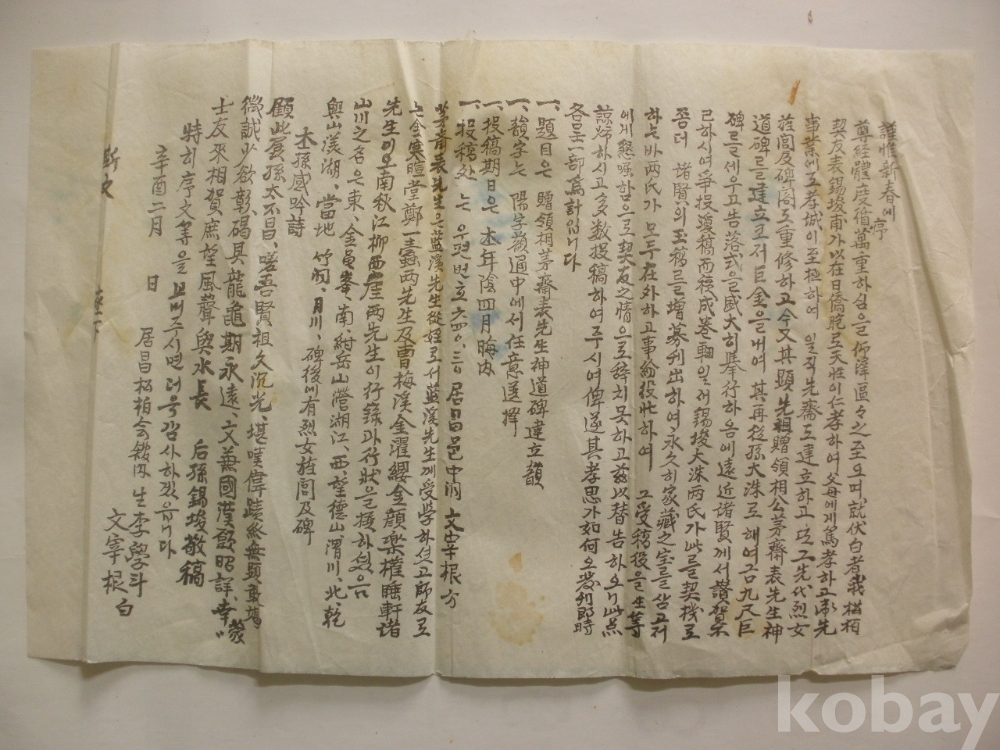 謹惟新春에 亨
尊經體度循萬重하심을 仰溸區々之至오며 就伏白者 我 松栢
契友 表錫埈甫가 以在日僑胞로 天性이 仁孝하여 父母에게 篤孝하고 爲先
事業에도 孝誠이 至極하여 일직 先齋도 建立하고 또 그 先代 烈女
旌閭及碑閣도 重修하고 今又 其 顯先祖 贈領相公 茅齋 表先生 神
道碑를 建立코저 巨金을 내여 其 再從孫 大洙로 해여금 九尺 巨
碑를 세우고 告落式을 盛大히 擧行하옴에 遠近 諸賢께서 讚賀不
已하시여 爭投瓊稿而積成卷軸일러 錫埈 大洙 兩氏가 此를 契機로
좀더 諸賢의 玉稿를 增募刊出하여 永久히 家藏之寶를 삼고저
하는바 兩氏가 모두 在外하고 事紛投忙하여 그 受稿役을 生等
에게 懇囑함으로 契友之情으로 辭치 못하고 玆以替告하오니 此点
諒烱하시고 多数 投稿하여 주시여 俾遂其孝思가 如何오 發刊卽時
各呈一部爲計입니다
一、題目은 贈領相茅齋表先生神道碑建立韻
一、韻字는 陽字韻通中에서 任意選擇
一、投稿期日은 本年 陰四月 晦內
一、投稿处는 우편번호 六四〇、三 居昌邑 中洞 文宰根 方
茅齋 表先生은 藍溪先生 從姪로서 藍溪先生께 受學하셧고 師友로
는 金寒暄堂 鄭一蠹 两先生 及 曺梅溪 金濯纓 金顔樂 權睡軒 諸
先生이오 南秋江 柳西崖 两先生이 行錄과 行狀을 撰하셧음
山川之名은 東、金貴峯、南、紺岳山 營湖江、西、望德山 渭川、北、乾
興山 漾湖、當地 竹洞、月川、碑後에 有 烈女旌閭及碑
本孫感吟詩
顧此孱孫太不昌、嗟吾賢祖久沉光、堪嘆偉蹟終無顯、裏竭
微誠少欲彰、碣具龍龜期永遠、文兼國漢敍昭詳、幸蒙
士友來相賀、庶望風聲與水長 后孫 錫埈 敬稿
特히 序文等을 보내주시면 더욱 감사하겠읍니다
辛酉 二月 日 居昌 松栢会 發内 生 李學斗
文宰根 白